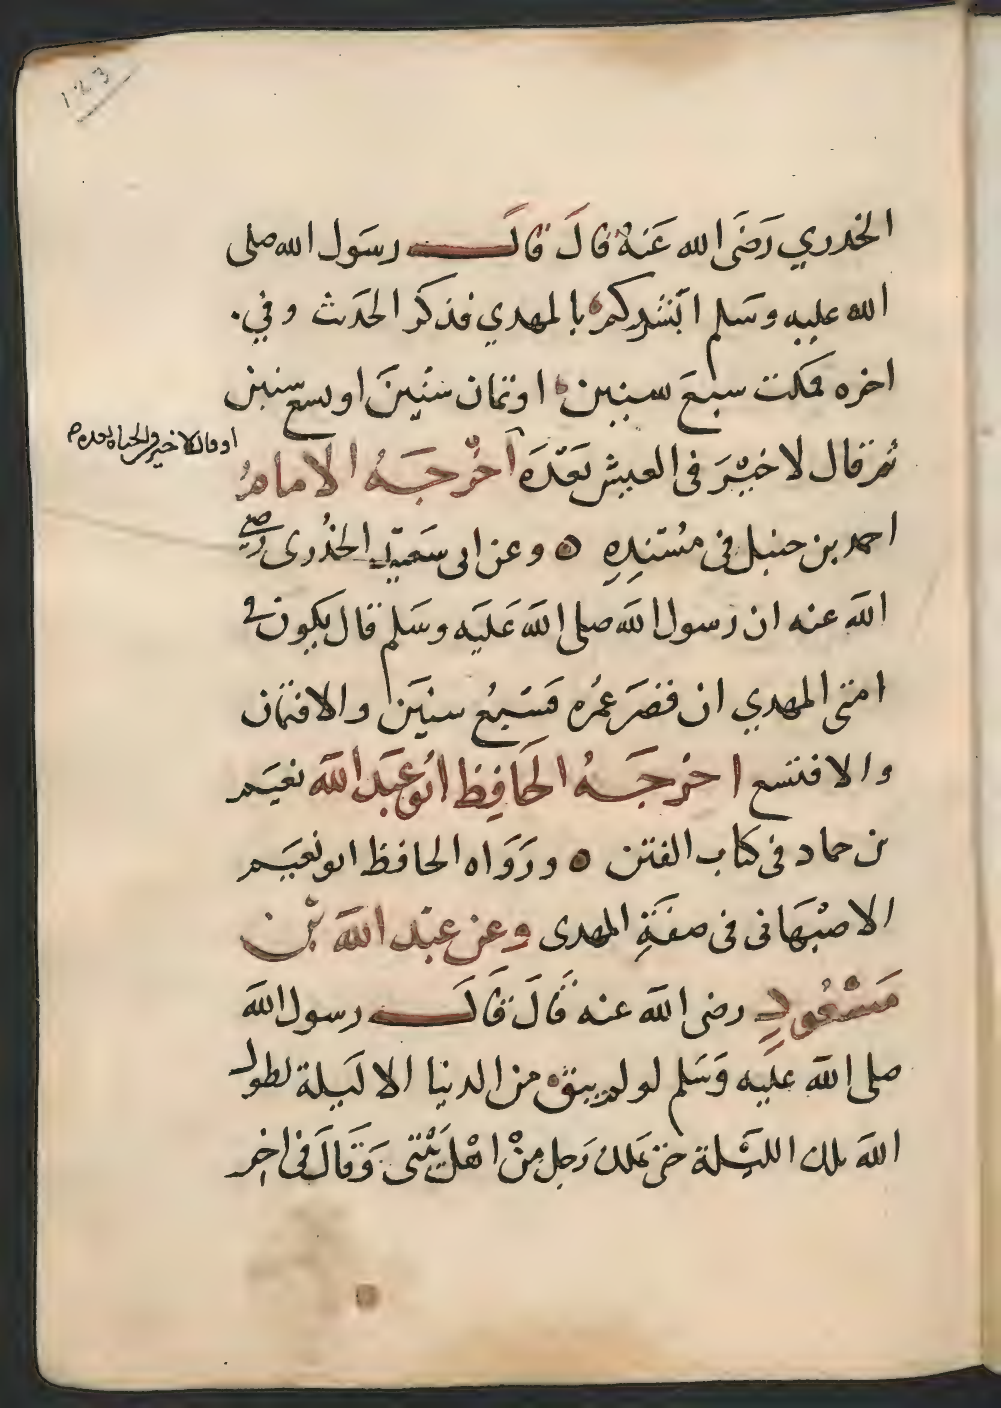 123
الخدري رَضَى الله عَنهُ قالَ قالَ رسَول الله صلى
الله عليه وسَلم ابَشركم بالمهدي فذكر الحَدث وفي
اخره فمكث سبعَ سنين اوثمان سنينَ اوتسع سنين
ثم قال لا خيْرَ فى العيش بَعْدَه آخرجَهُ الامامُ
او قال لا خير فى الحياه بعده
احمد بن حنبل فى مسْنَدِهِ ○ وعن ابى سَعيْد الخُدْرى رضى
الله عنه ان رسول الله صلى الله عَلَيه وسَلم قال يكون فى
امتى المهدي ان قصَر عُمُره فَسَبعُ سنيَن والا فثمان
والا فتسع اخرجَهُ الحَافِظ ابُو عَبَد الله نعيَم
بن حماد فى كتاب الفتن ○ ورَوَاه الحافظ ابو نعيَم
الاصْبَهانى فى صفَةِ المهدى وعن عبْد الله بْن
مَسْعُودٍ رضى الله عنه قَالَ قَالَ رسول الله
صلى الله عَليه وَسَلم لو لم يبق من الدنيا الا ليَلة لطول
الله تلك الليْلة حتى يملك رَجل مِنْ اهْل بَيْتى وَقَالَ فى اخِر